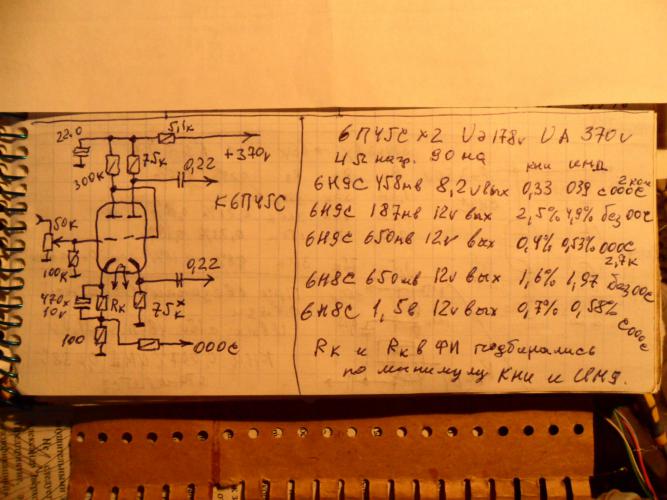 22.0
5,1к
+370v
300к
75к
0,22
К6П45С
50к
100к
0,22
470x
10v
Rк
75к x
100
ОООС
6П45С х2 Uэ 178v UA 370v
4Ω нагр. 90 на
КНИ ИМД
6Н9С 458мв 8,2v вых 0,33 039 с ОООС
2ком
6Н9С 187мв 12v вых 2,5% 4,9% без ООС
6Н9С 650мв 12v вых 0,4% 0,53% ОООС
2,7к
6Н8С 650мв 12v вых 1,6% 1,97 без ООС
6Н8С 1,5в 12v вых 0,7% 0,58% с ОООС
Rк и Rк в ФИ подбирались
по минимуму КНИ и ИМД.